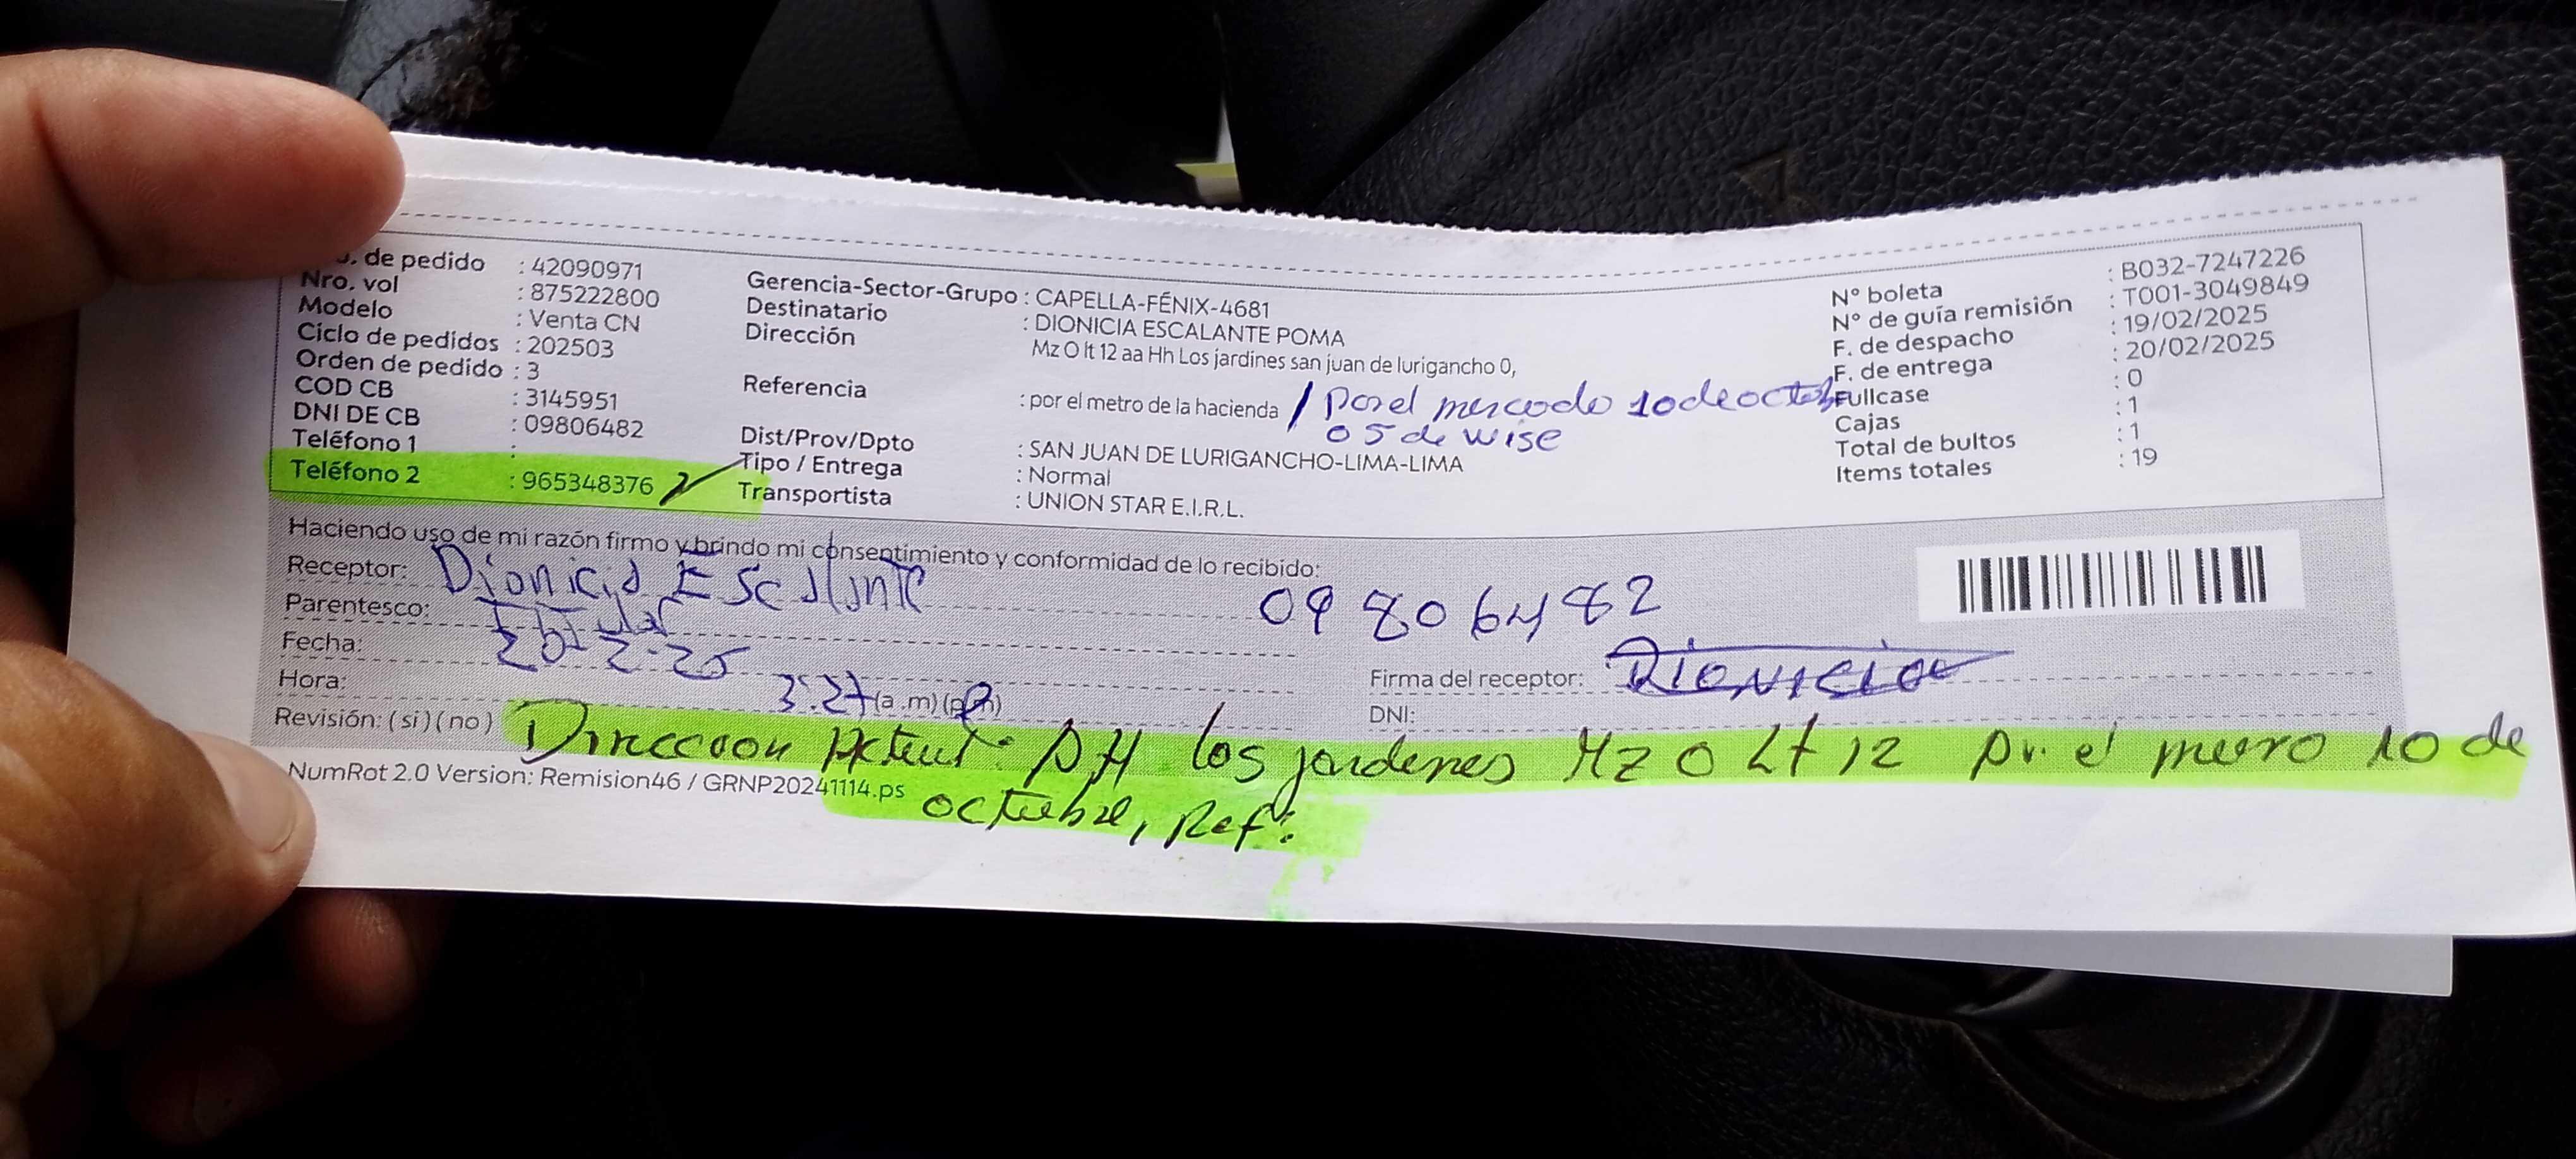 o. de pedido : 42090971
Nro. vol : 875222800
Modelo : Venta CN
Ciclo de pedidos : 202503
Orden de pedido : 3
COD CB : 3145951
DNI DE CB : 09806482
Teléfono 1 :
Teléfono 2 : 965348376
Gerencia-Sector-Grupo : CAPELLA-FÉNIX-4681
Destinatario : DIONICIA ESCALANTE POMA
Dirección : Mz O lt 12 aa Hh Los jardines san juan de lurigancho 0,
Referencia : por el metro de la hacienda / Por el mercado 10 de octub
05 de wise
Dist/Prov/Dpto : SAN JUAN DE LURIGANCHO-LIMA-LIMA
Tipo / Entrega : Normal
Transportista : UNION STAR E.I.R.L.
N° boleta : B032-7247226
N° de guía remisión : T001-3049849
F. de despacho : 19/02/2025
F. de entrega : 20/02/2025
Fullcase : 0
Cajas : 1
Total de bultos : 1
Items totales : 19
Haciendo uso de mi razón firmo y brindo mi consentimiento y conformidad de lo recibido:
Receptor: Dionicia Escalante 09806482
Parentesco: Titular
Fecha: 20-2-25
Hora: 3:27 (a .m) (p.m)
Firma del receptor: Dionicia
Revisión: ( si ) ( no )
DNI:
Direccion Actual: AH los jardenes Mz O Lt 12 pr. el 10 de
octubre, Ref:
NumRot 2.0 Version: Remision46 / GRNP20241114.ps